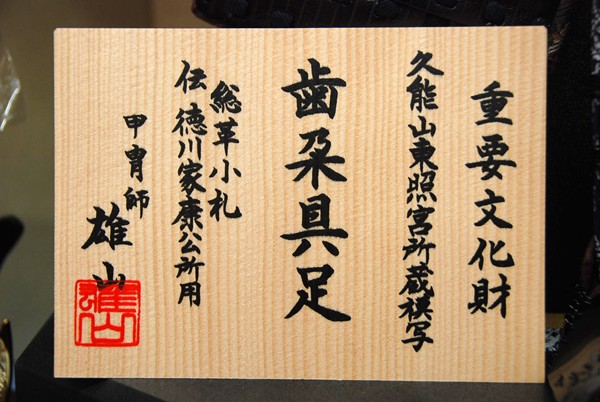 重要文化財
久能山東照宮所蔵模写
歯朶具足
総革小札
伝 徳川家康公所用
甲冑師
雄山
雄山